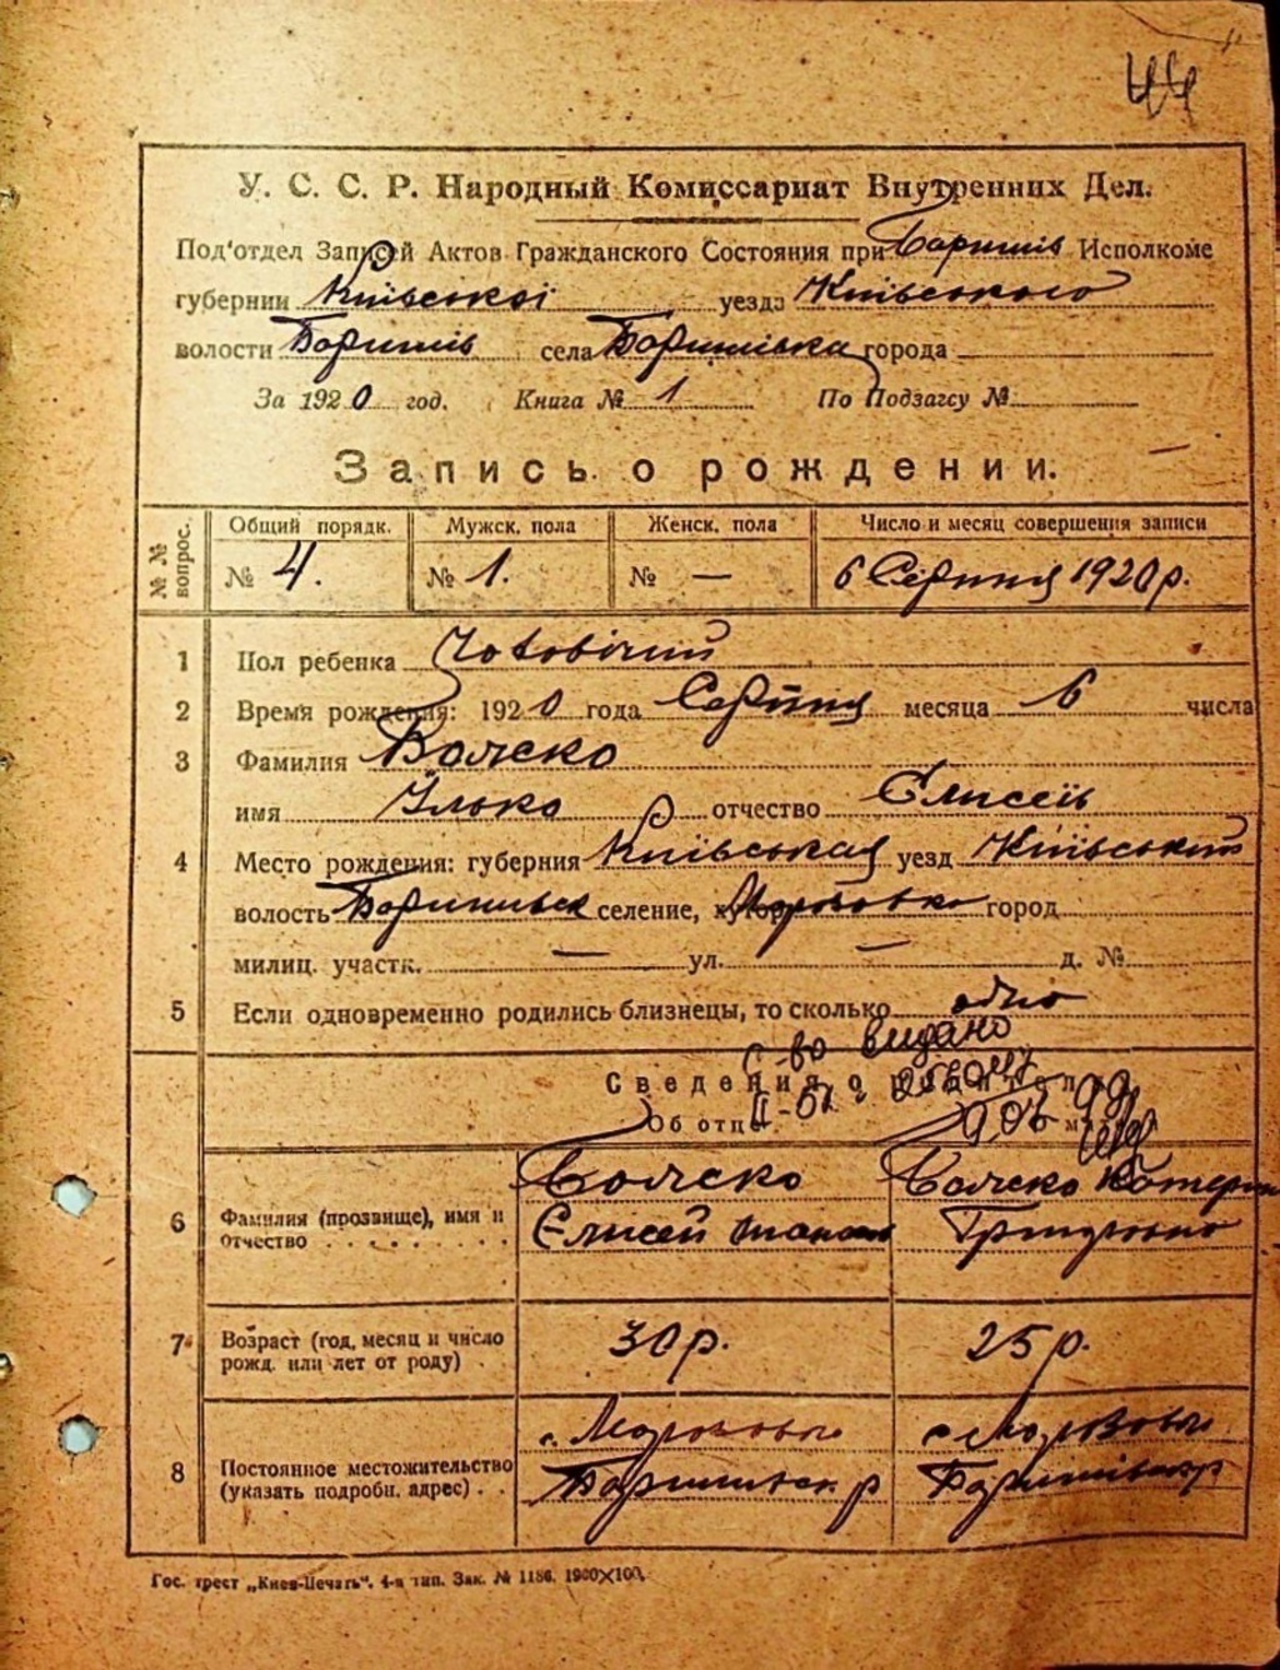 44
У. С. С. Р. Народный Комиссариат Внутренних Дел.
Под'отдел Записей Актов Гражданского Состояния при Баришів Исполкоме
губернии Київської уезда Київського
волости Баришів села Баришівка города
За 1920 год. Книга № 1 По Подзагсу №
Запись о рождении.
№ № вопрос. Общий порядк. Мужск. пола Женск. пола Число и месяц совершения записи
№ 4. № 1. № — 6 Серпня 1920 р.
1 Пол ребенка Чоловічий
2 Время рождения: 1920 года Серпня месяца 6 числа
3 Фамилия
имя Ілько отчество Єлисеїв
4 Место рождения: губерния Київская уезд Київський
волость Баришівск селение, хутор Морозовка город
милиц. участк. — ул. — д. №
5 Если одновременно родились близнецы, то сколько одно
С-во видано
Сведения о родителях
Об отце.
6 Фамилия (прозвище), имя и
отчество
Єлисей
7 Возраст (год, месяц и число 30 р. 25 р.
рожд. или лет от роду)
с. Морозовки с. Морозовки
8 Постоянное местожительство Баришівск. р Баришівск р
(указать подробн. адрес)
Гос. трест „Киев-Печать“. 4-я тип. Зак. № 1186. 1900×100.